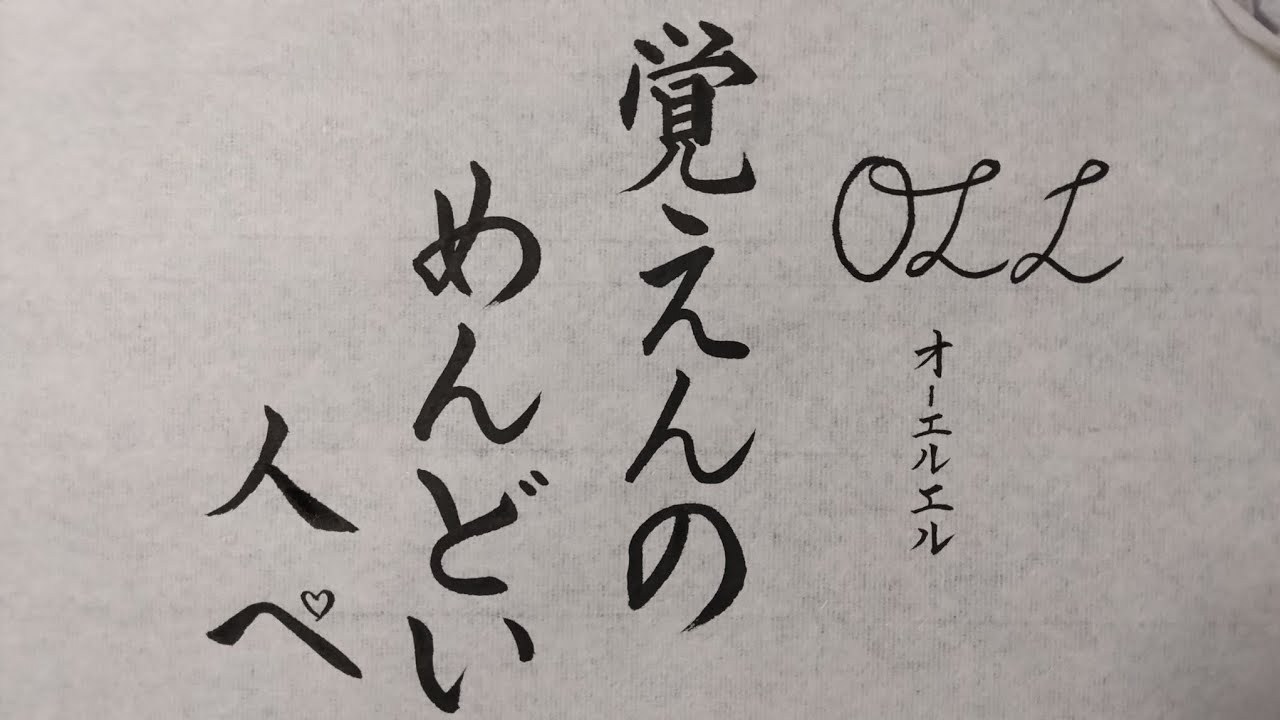 OLL
オーエルエル
覚えんの
めんどい
人ぺ